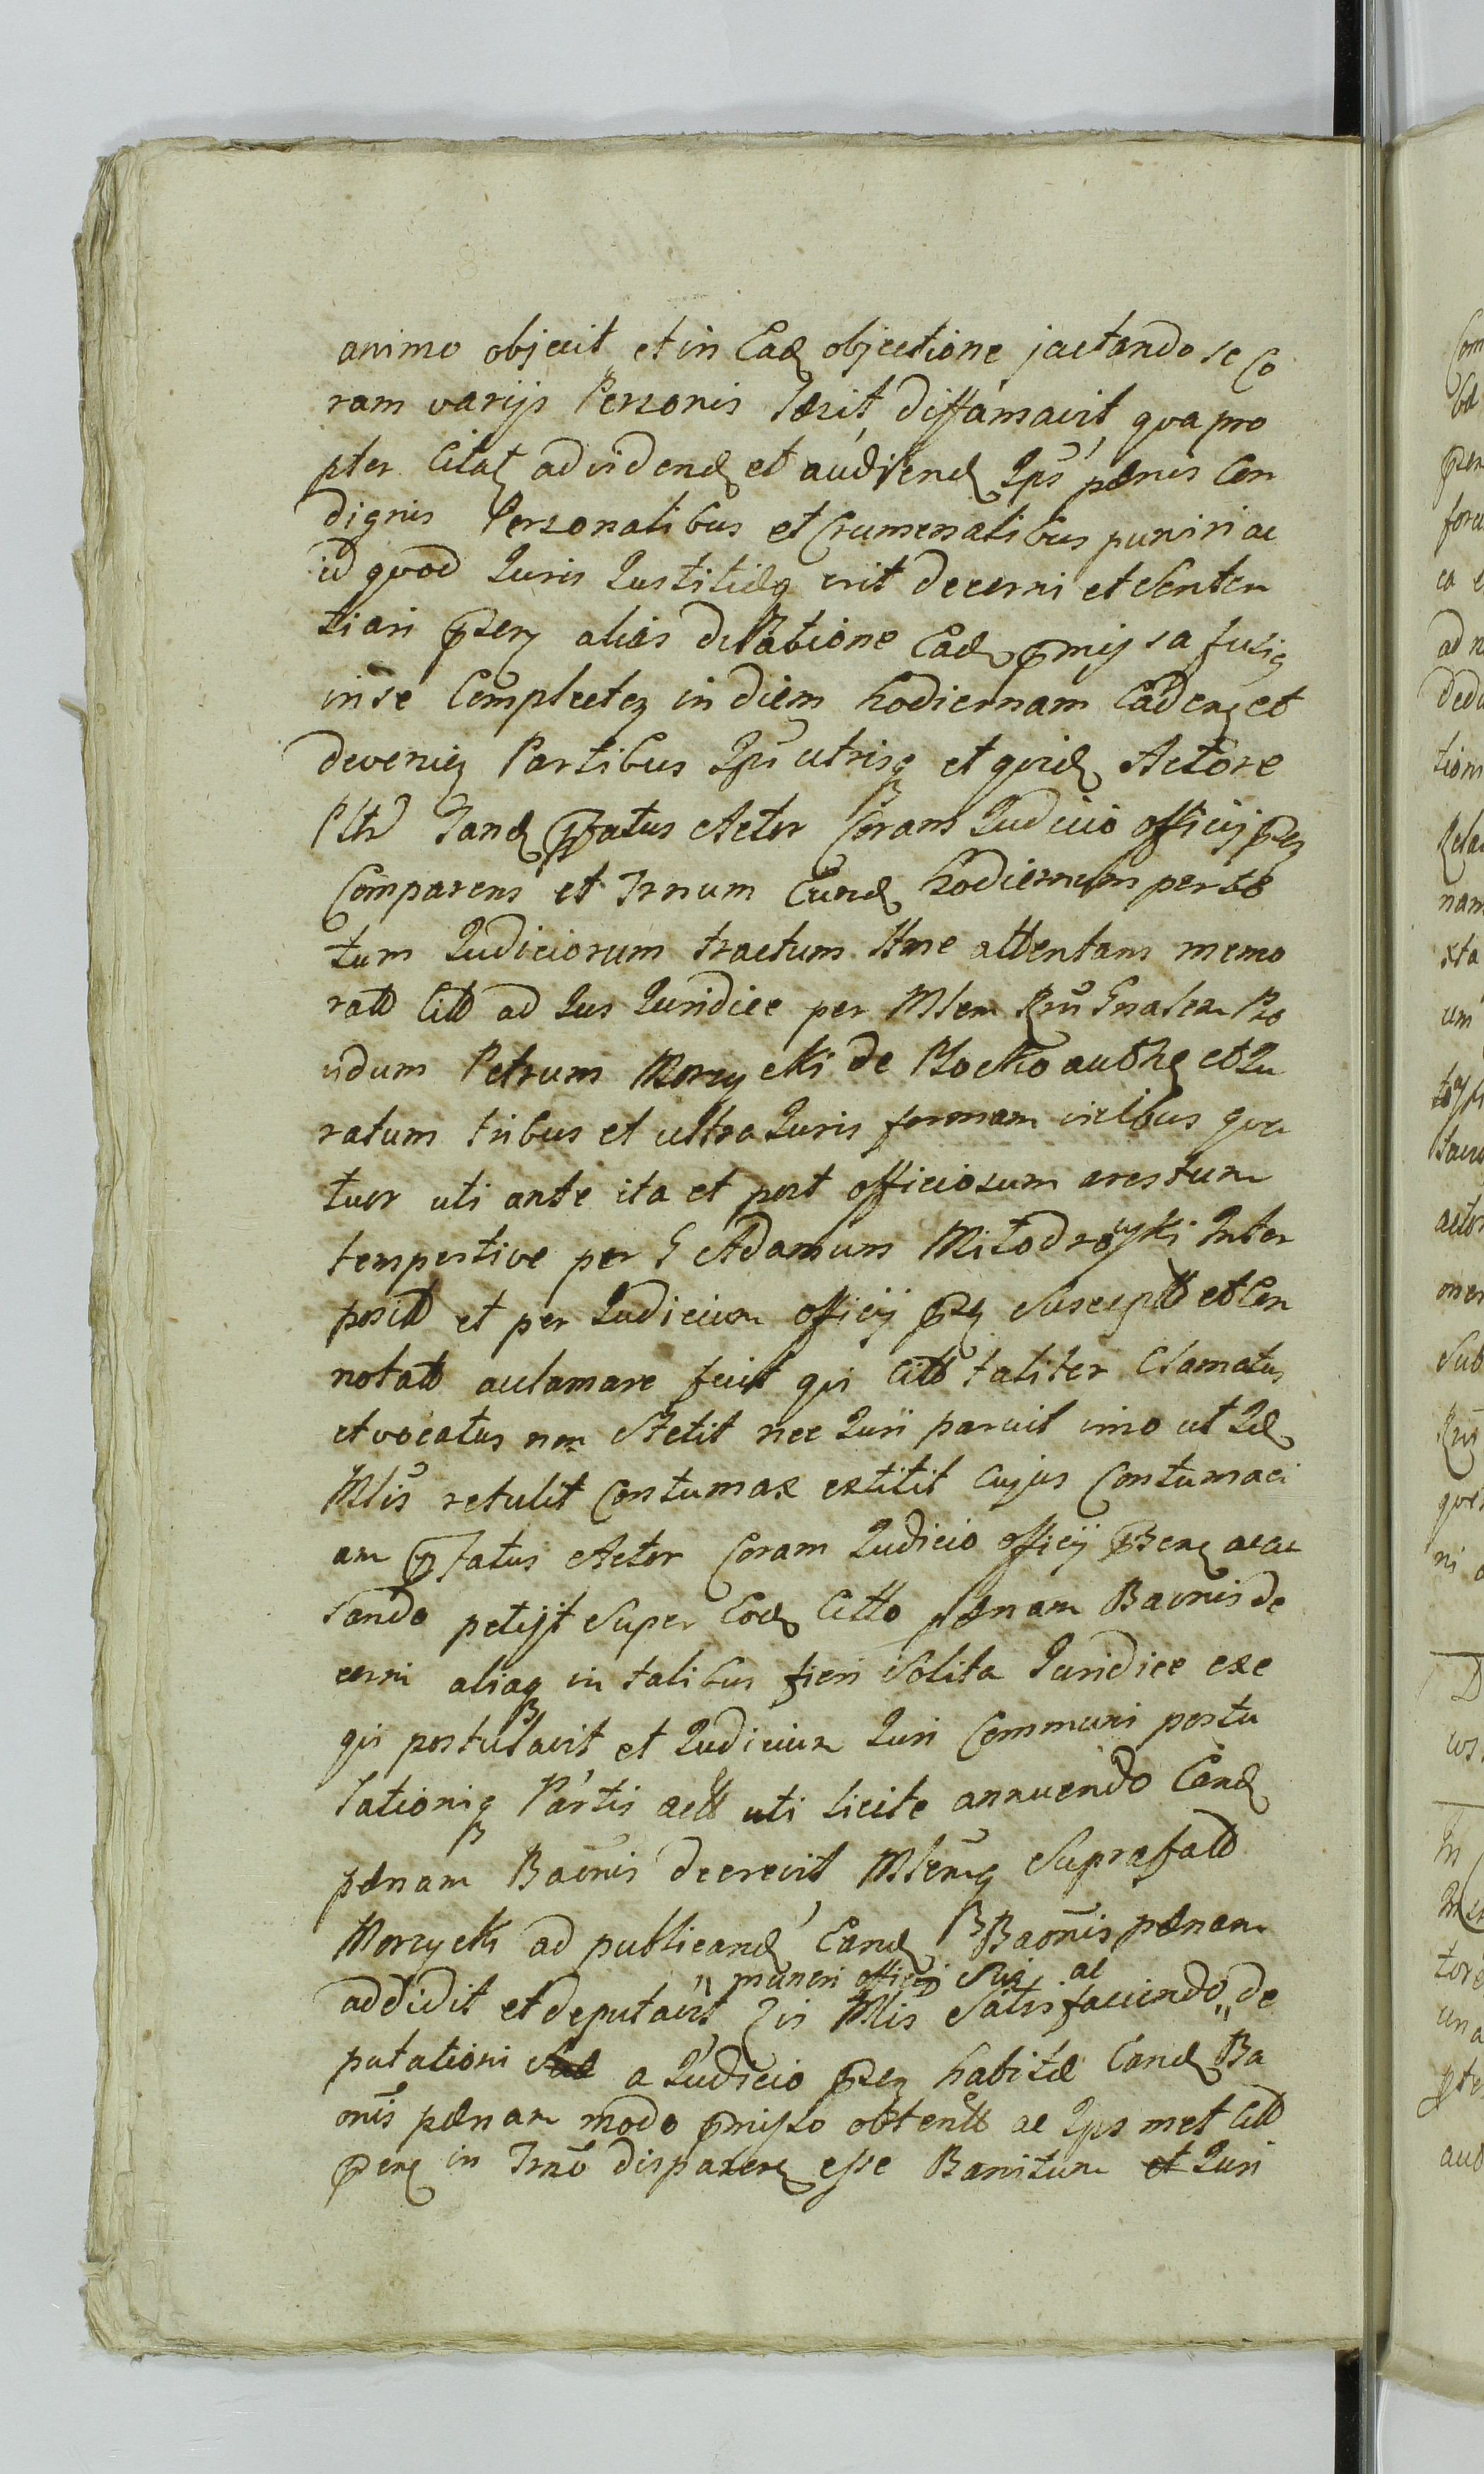 animo objecit et in Ead objectione jactando se Co
ram varijs Personis læsit, diffamavit, qva pro
pter Citat ad videnđ et audienđ Ips pænis Con
dignis Personalibus et Crumenalibus puniri ac
id qvod Juris Justitiæq erit decerni et Senten
tiari pzen alias dilatione Ead pmissa fusiq
in se Complecten in diem hodiernam Caden et
devenien Partibus Ips utrisq et qvid Actore
Pltr Tand pfatus Actor Coram Judicio officij pzen
Comparens et Trnum Eund hodiernum per to
tum Judiciorum tractum ttme attentans memo
ratt Citt ad Jus Juridice per Mlem Rni Gnalem Pro
vidum Petrum Morzycki de Plocko auth et Ju
ratum tribus et ultra Juris formam vicibus qva
tuor uti ante ita et post officiosum arestum
tempestive per G Adamum Młodrzyski Inter
positt et per Judicium officij pzen Susceptt et Con
notatt aclamare fecit qui Citt taliter Clamatus
et vocatus non Stetit nec Juri paruit imo ut Id
Mlis retulit Contumax extitit Cujus Contumaci
am pfatus Actor Coram Judicio officij pzen accu
sando petijt Super Eod Citto pænam Baonis de
cerni aliaq in talibus fieri Solita Juridice exe
qvi postulavit et Judicium Juri Communi postu
lationiq Partis actt uti licite annuendo Eand
pænam Baonis decrevit Mlemq Suprafatt
Morzycki ad publicand Eand Baonis pænam
addidit et deputavit, Qui Mlis Satisfaciendo de
" muneri officij Sui ac
putationi a Judicio pzen habitæ Eand Ba
onis pænam modo pmisso obtentt ac Ips met Citt
pzen in Trno disparen esse Banitum et Juri